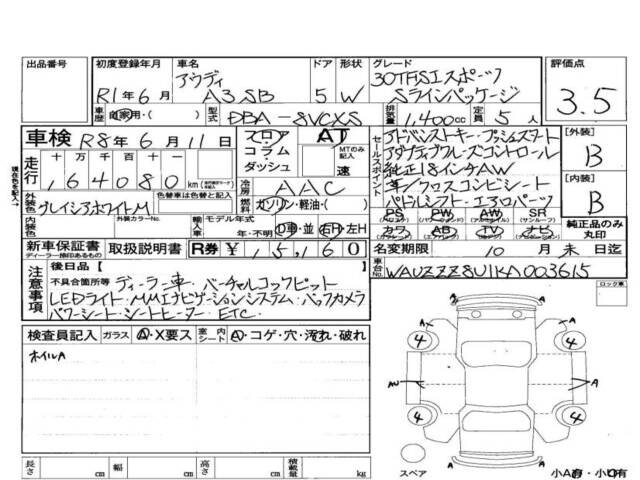 出品番号
初度登録年月 車名 ドア 形状 グレード 評価点
アウディ 30TFSIスポーツ
R1年6月 A3 SB 5 W Sラインパッケージ 3.5
車歴 自家用・( ) 型式 DBA-8VCXS 排気量 1,400cc 定員 5人
車検 R8年6月11日 フロア コラム ダッシュ AT MTのみ記入 速
セールスポイント アドバンストキー・プッシュスタート
アダプティブクルーズコントロール
純正18インチAW
革/クロスコンビシート
パドルシフト・エアロパーツ
[外装] B
[内装] B
走行 十万 万 千 百 十
164080km
冷房 AAC
外装色 色替車は色替と記入 グレイシアホワイトM
燃料 ガソリン・軽油・( )
内装色 外装カラーNo. 輸入車 モデル年式 年・不明 D車・並 右H・左H
PS PW AW SR
カワ AB TV ナビ
純正品のみ丸印
新車保証書 ディーラー捺印あるもの 取扱説明書 R券 ¥15,160
名変期限 10月末日迄
車台No. WAUZZZ8V1KA003615
注意事項 後日品( )
不具合箇所等 ディーラー車・バーチャルコックピット
LEDライト・MMIナビゲーションシステム・バックカメラ
パワーシート・シートヒーター・ETC・
ロック車
検査員記入 ガラス A・X要ス 室内シート A・コゲ・穴・汚れ・破れ
ホイルA
A
4 4
A A
4 4
スペア
長さ cm 幅 cm 高さ cm 積載量 kg
小A有・小U有